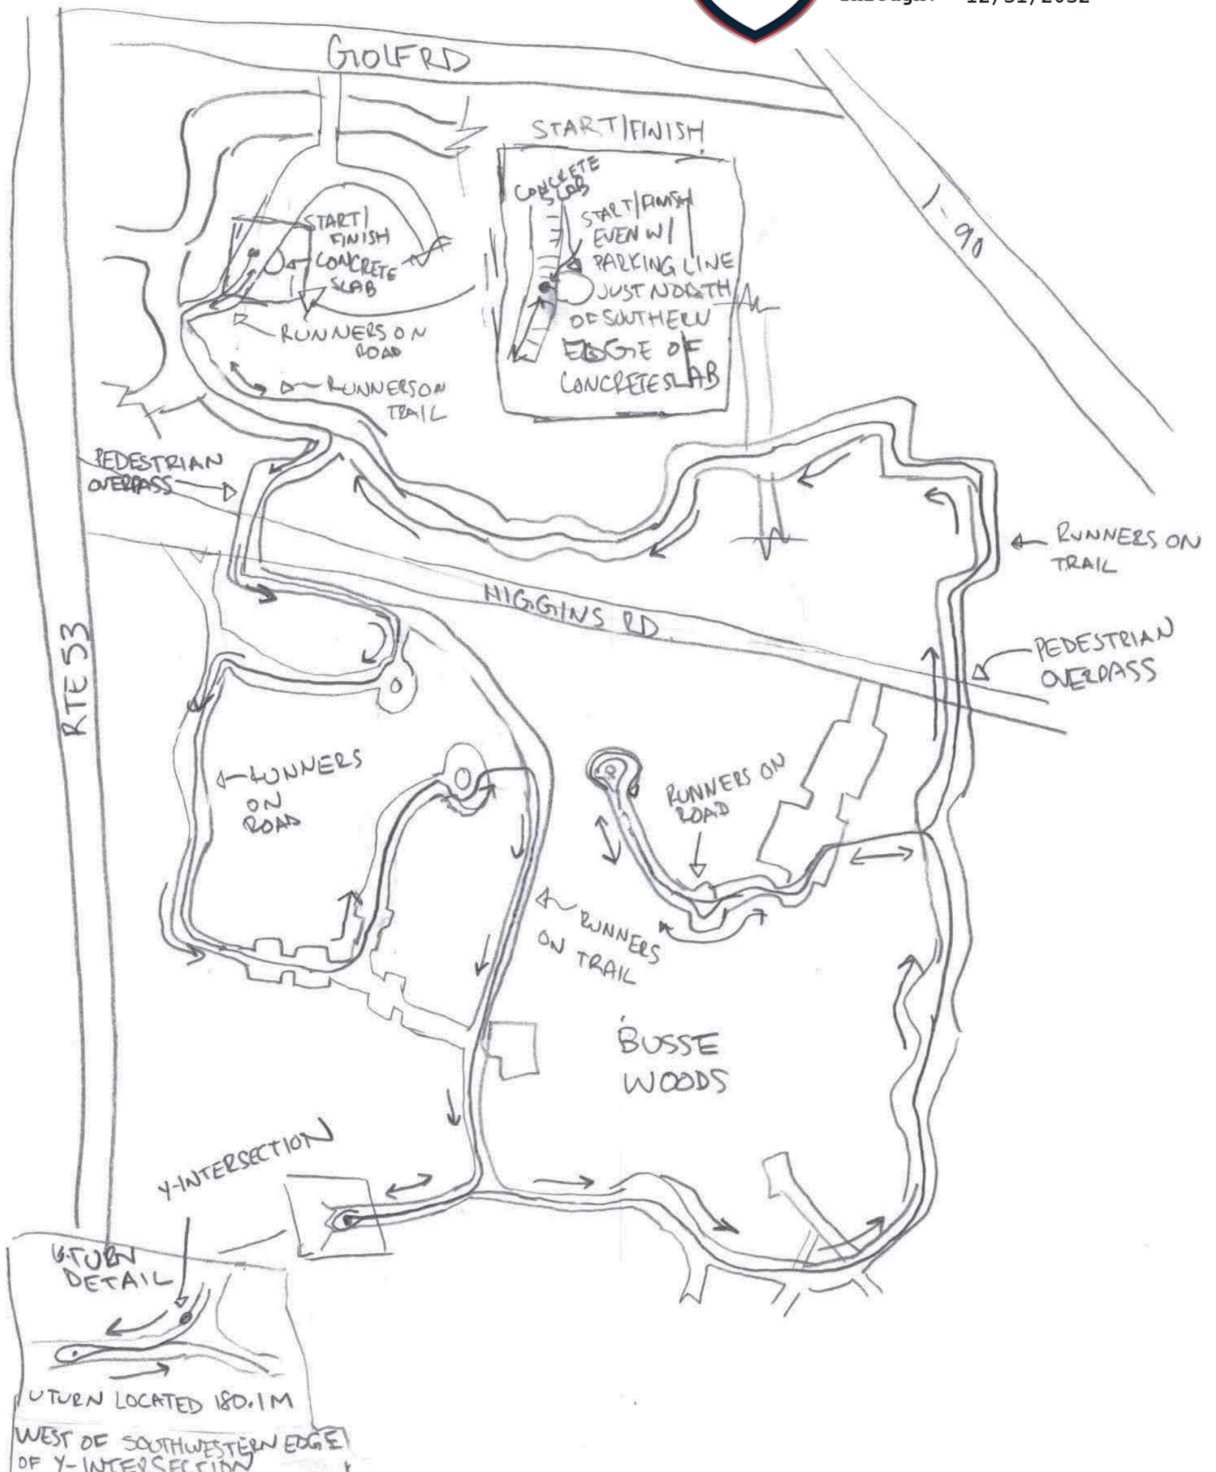 Through: 12/31/2032
GOLF RD
I-90
START/FINISH
CONCRETE
SLAB
START/FINISH
EVEN W/
PARKING LINE
JUST NORTH
OF SOUTHERN
EDGE OF
CONCRETE SLAB
START/
FINISH
CONCRETE
SLAB
RUNNERS ON
ROAD
RUNNERS ON
TRAIL
PEDESTRIAN
OVERPASS
RUNNERS ON
TRAIL
HIGGINS RD.
PEDESTRIAN
OVERPASS
RTE 53
RUNNERS
ON
ROAD
RUNNERS ON
ROAD
RUNNERS
ON TRAIL
BUSSE
WOODS
Y-INTERSECTION
U-TURN
DETAIL
UTURN LOCATED 180.1M
WEST OF SOUTHWESTERN EDGE
OF Y-INTERSECTION